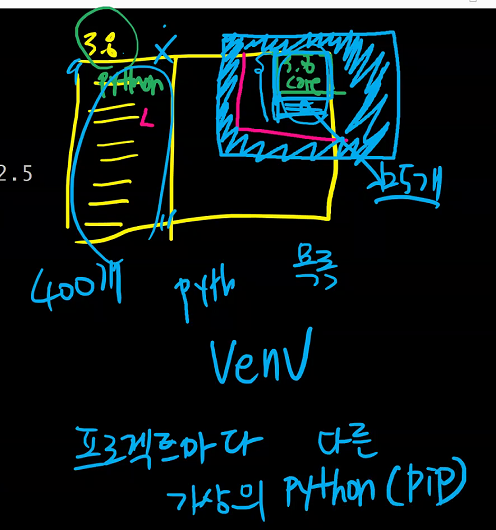 3.8
python
L
3.8
core
2.5
25개
400개
pyth
VenV
프로젝트마다 다른
가상의 Python (PiP)